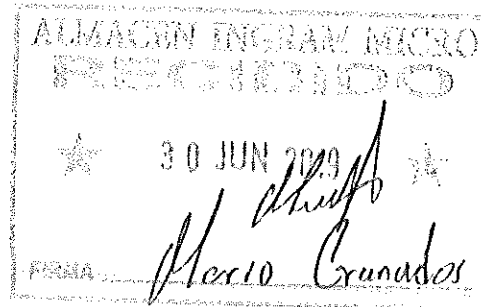 ALMACEN INGRAM MICRO
RECIBIDO
30 JUN 2019
FIRMA
Mario Granados